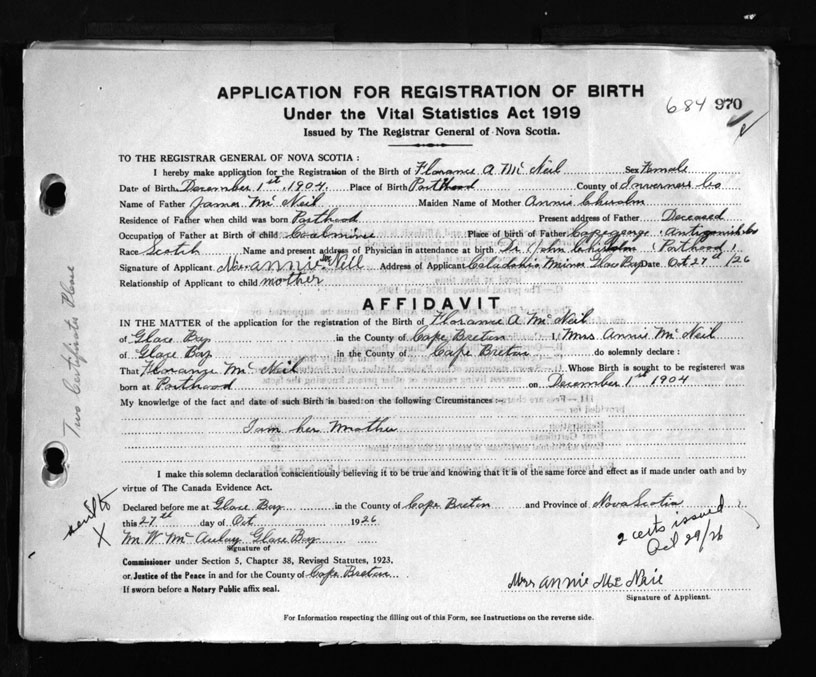 APPLICATION FOR REGISTRATION OF BIRTH
684 970
Under the Vital Statistics Act 1919
Issued by The Registrar General of Nova Scotia.
TO THE REGISTRAR GENERAL OF NOVA SCOTIA :
I hereby make application for the Registration of the Birth of Florance A McNeil Sex Female
Date of Birth December 1st 1904. Place of Birth Porthood County of Inverness Co
Name of Father James McNeil Maiden Name of Mother Annie Chisholm
Residence of Father when child was born Porthood Present address of Father Deceased
Occupation of Father at Birth of child Coalmine Place of Birth of Father Cape george Antigonish Co
Race Scotch Name and present address of Physician in attendance at birth Dr John Chisholm Porthood
Signature of Applicant Mrs annie McNeil Address of Applicant Caledonia Mines Glace Bay Date Oct 27th /26
Relationship of Applicant to child mother
AFFIDAVIT
IN THE MATTER of the application for the registration of the Birth of Florance A McNeil
of Glace Bay in the County of Cape Breton I Mrs. Annie McNeil
of Glace Bay in the County of Cape Breton do solemnly declare :
That Florance McNeil Whose Birth is sought to be registered was
born at Porthood on December 1st 1904
My knowledge of the fact and date of such Birth is based on the following Circumstances :-
I am her Mother
I make this solemn declaration conscientiously believing it to be true and knowing that it is of the same force and effect as if made under oath and by
virtue of The Canada Evidence Act.
Declared before me at Glace Bay in the County of Cape Breton and Province of Nova Scotia
this 27th day of Oct 1926
M W McAulay Glace Bay
Signature of
Commissioner under Section 5, Chapter 38, Revised Statutes, 1923,
or Justice of the Peace in and for the County of Cape Breton
If sworn before a Notary Public affix seal.
2 certs issued
Oct 29/26
Mrs annie McNeil
Signature of Applicant.
For Information respecting the filling out of this Form, see Instructions on the reverse side.
Two Certificates Please
X